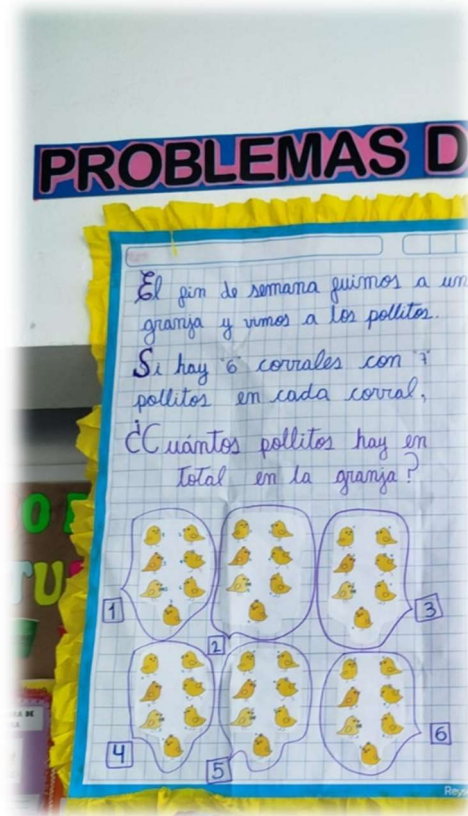 PROBLEMAS D
El fin de semana fuimos a un
granja y vimos a los pollitos.
Si hay "6" corrales con "7"
pollitos en cada corral,
¿Cuántos pollitos hay en
total en la granja?
1
2
3
4
5
6